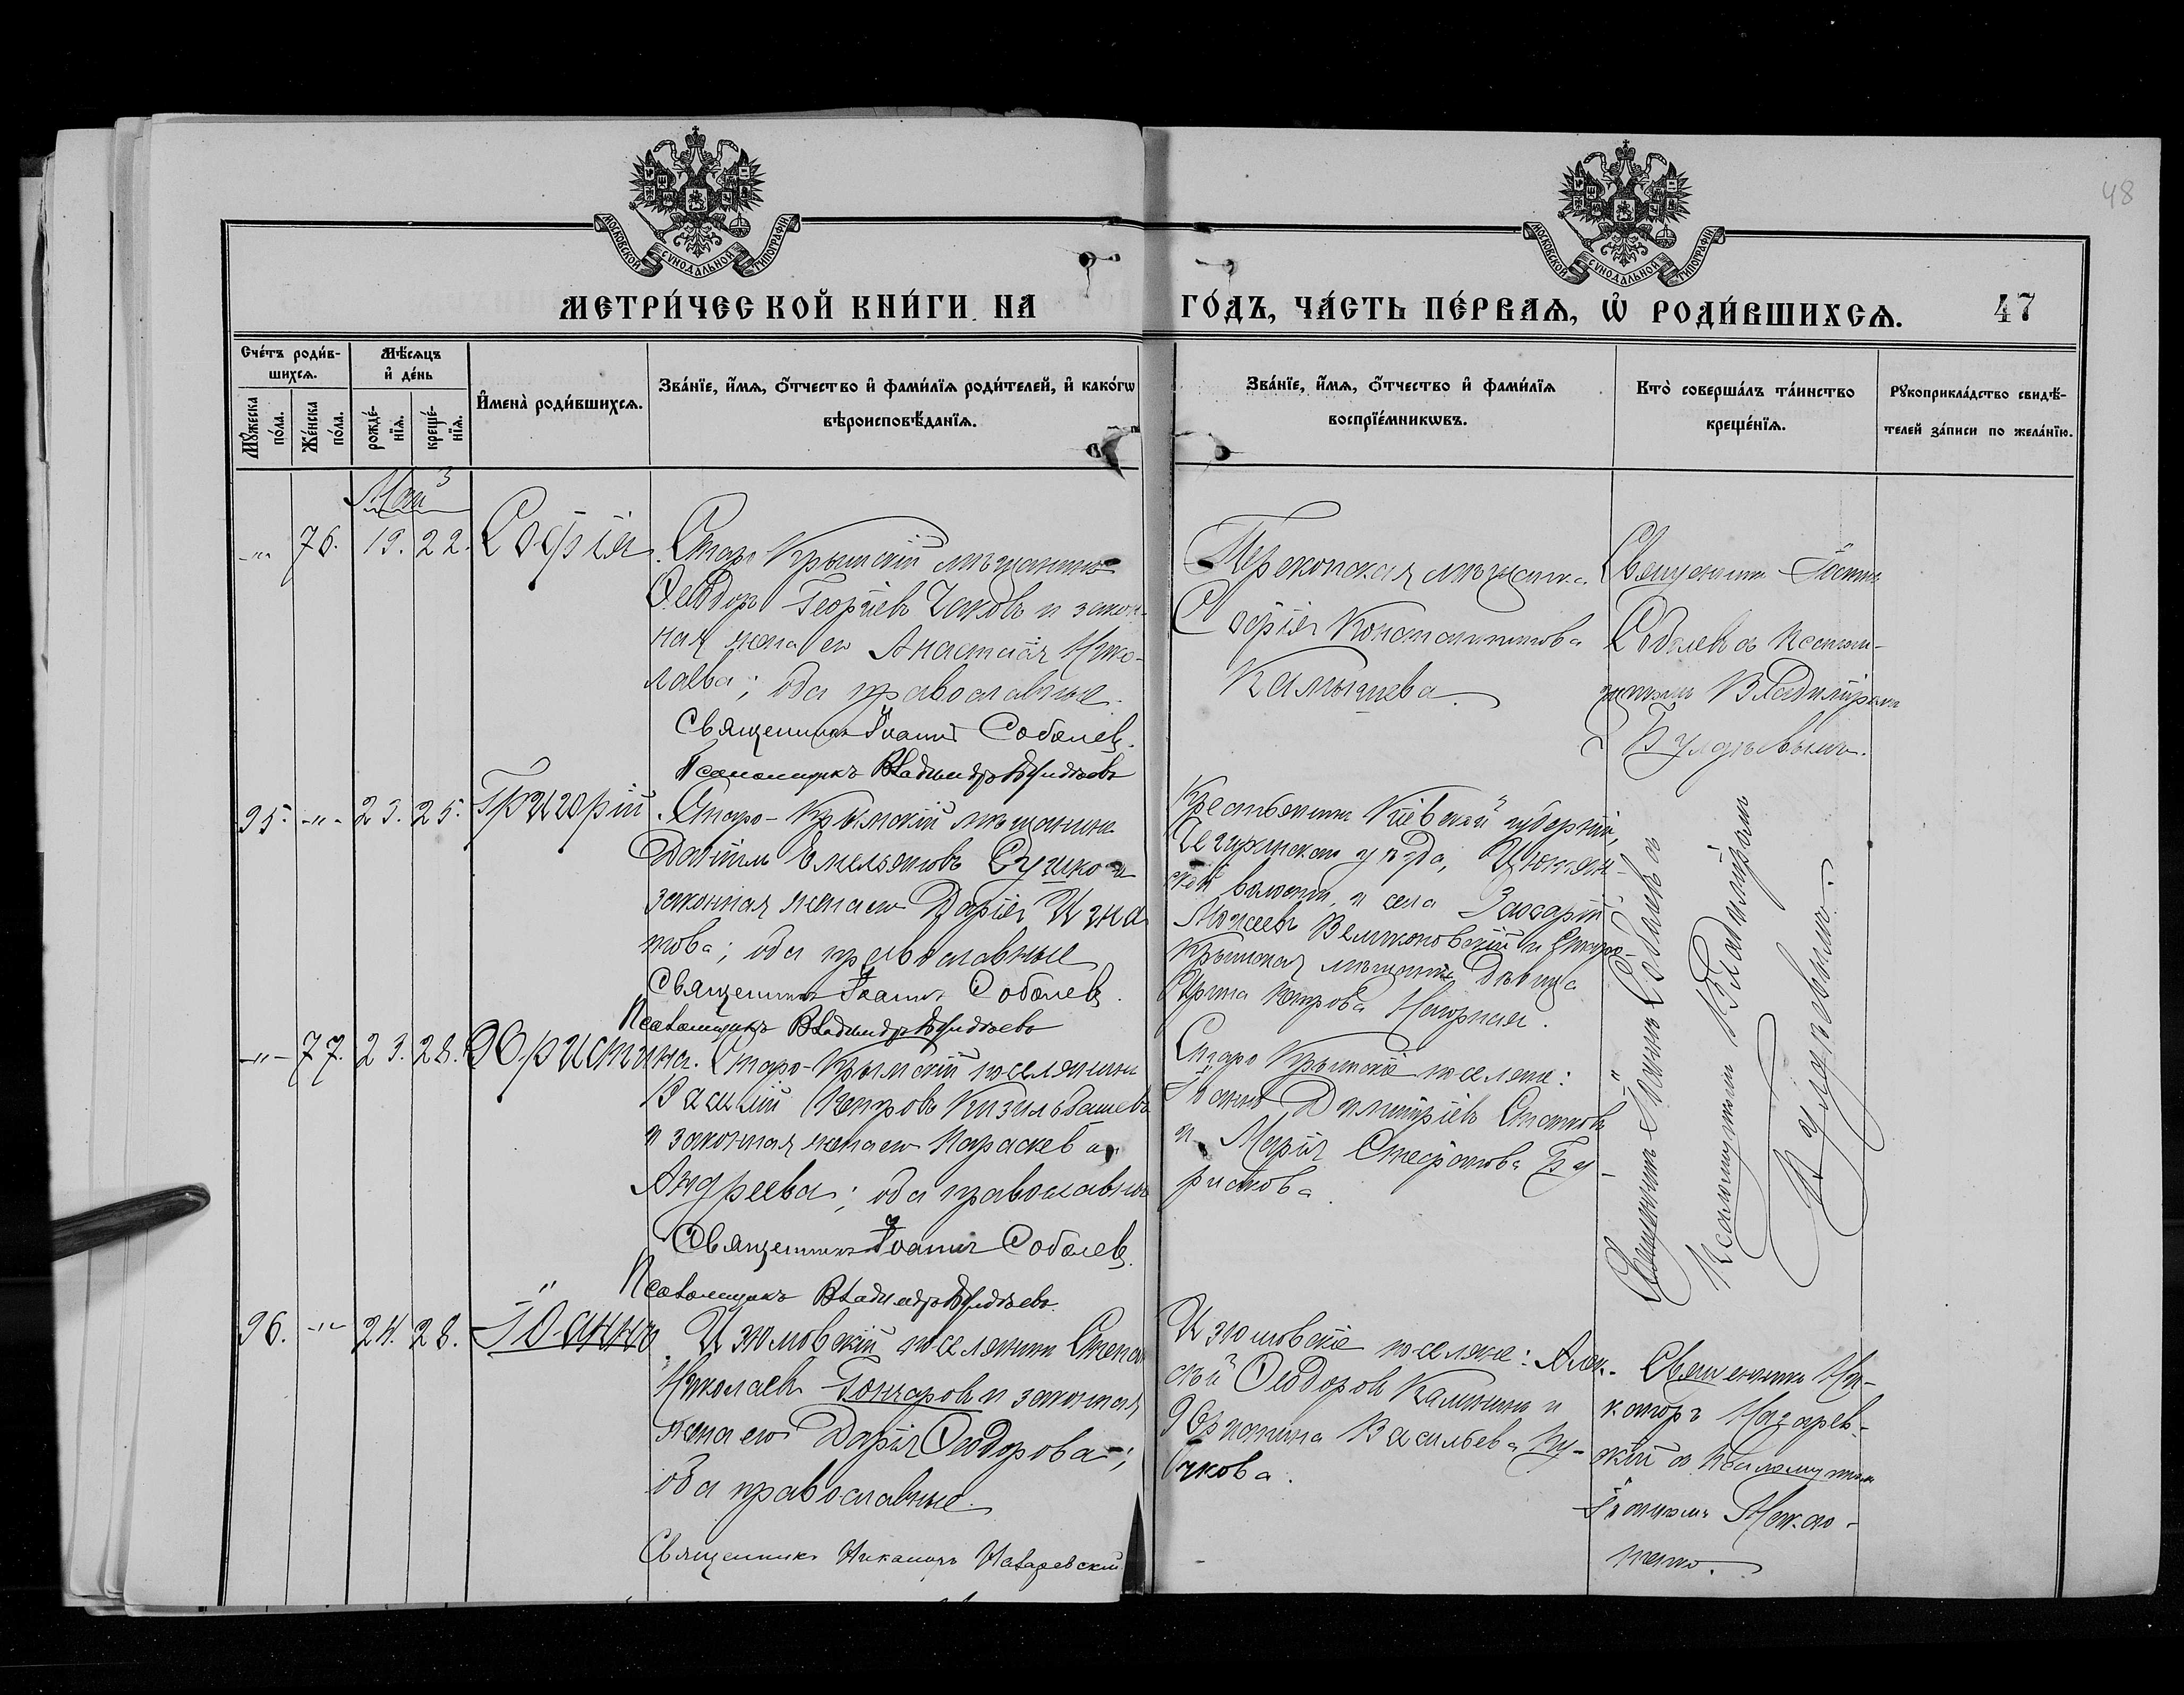 48
МОСКОВСКОЙ СѴНОДАЛЬНОЙ ТИПОГРАФІИ
МОСКОВСКОЙ СѴНОДАЛЬНОЙ ТИПОГРАФІИ
МЕТРИ́ЧЕСКОЙ КНИ́ГИ НА ГО́ДЪ, ЧА́СТЬ ПЕ́РВАѦ, Ѡ҆ РОДИ́ВШИХСѦ. 47
Сче́тъ роди́в-
шихсѧ.
Мꙋ́жеска по́ла.
Же́нска по́ла.
Мѣ́сѧцъ
и҆ де́нь
рожде́-
нїѧ.
креще́-
нїѧ.
И҆мена̀ роди́вшихсѧ.
Зва́нїе, и҆́мѧ, ѻ҆́тчество и҆ фами́лїѧ роди́телей, и҆ како́гѡ
вѣроисповѣ́данїѧ.
Зва́нїе, и҆́мѧ, ѻ҆́тчество и҆ фами́лїѧ
воспрїе́мникѡвъ.
Кто̀ соверша́лъ та́инство
креще́нїѧ.
Рꙋкоприкла́дство свидѣ́-
телей за́писи по жела́нїю.
Май
-"- 76. 19. 22. Софія
Старо-Крымскій мѣщанинъ
Ѳеодоръ Георгіевъ Чаковъ и закон-
ная жена его Анастасія Нико-
лаева; оба православные.
Священникъ Іоаннъ Соболевъ.
Псаломщикъ Владиміръ
Перекопская мѣщанка
Софія Константинова
Камышева.
Священникъ Іоаннъ
Соболевъ съ псалом-
щикомъ Владиміромъ
95. -"- 23. 25. Григорій
Старо-Крымскій мѣщанинъ
Даніилъ Емельяновъ Сушко и
законная жена его Дарія Игна
това; оба православные
Священникъ Іоаннъ Соболевъ.
Псаломщикъ Владиміръ
Крестьянинъ Кіевской губерніи,
Чигиринскаго уѣзда,
волости, и села Захарій
Моисеевъ и Старо-
Крымская мѣщанка дѣвица
Ирина Петрова Нагорная.
Священникъ Іоаннъ Соболевъ съ
Псаломщикомъ Владиміромъ
-"- 77. 23. 28. Христина.
Старо-Крымскій поселянинъ
Василій Петровъ Кизильбашевъ
и законная жена его Параскева
Андреева; оба православные
Священникъ Іоаннъ Соболевъ.
Псаломщикъ Владиміръ
Старо Крымскіе поселяне:
Іоаннъ Димитріевъ Статовъ
и Марія Стефанова Бу-
рикова.
96. -"- 24. 28. Іоаннъ
Изюмовскій поселянинъ Стефанъ
Николаевъ Гончаровъ и законная
жена его Дарія Ѳеодорова;
оба православные.
Священникъ Никаноръ Назаревскій
Изюмовскіе поселяне: Алек-
сѣй Ѳеодоровъ Калинина и
Христина Васильева
Священникъ Ни-
каноръ Назарев-
скій съ псаломщикомъ
Іоанномъ